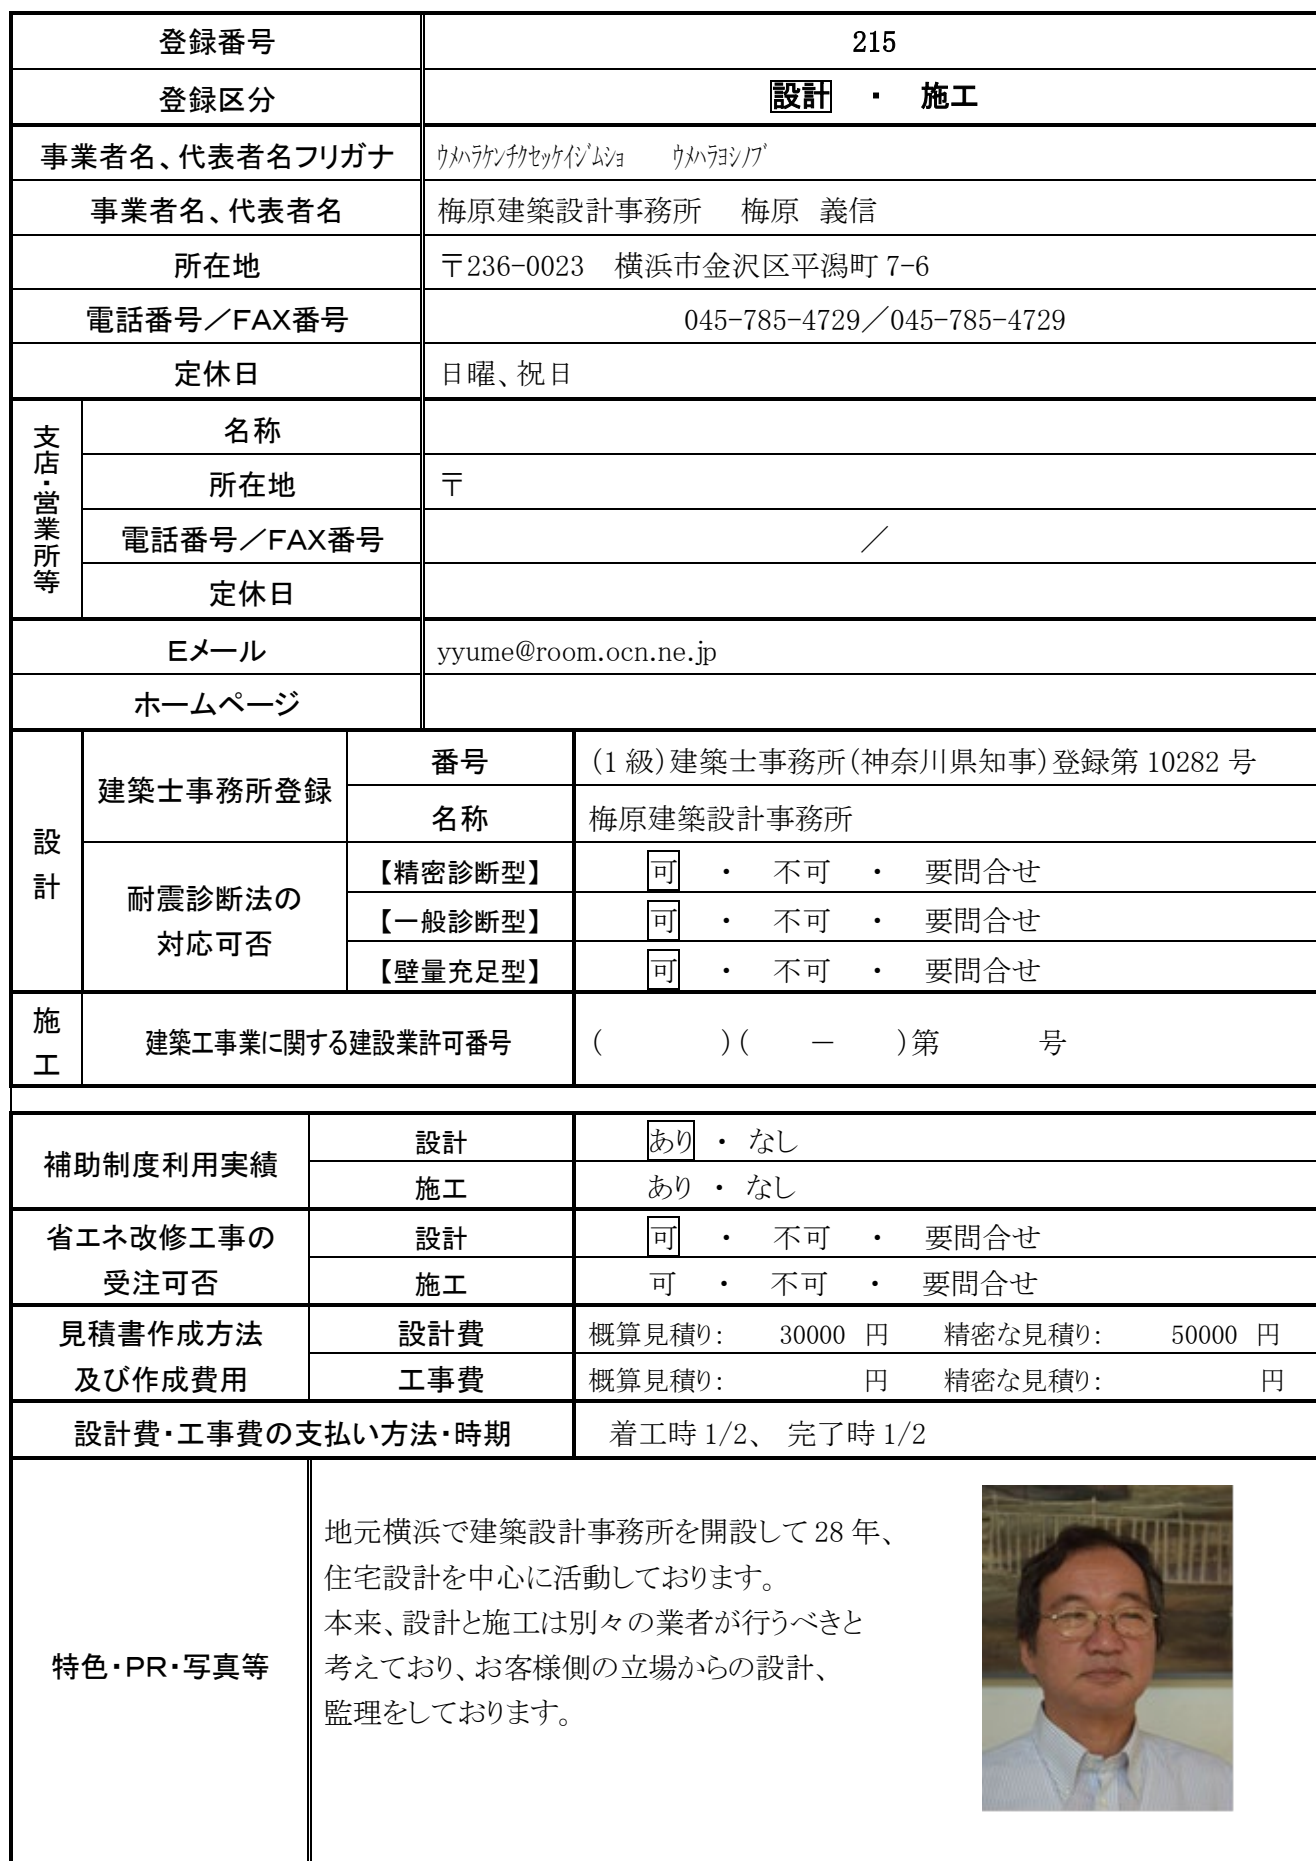 登録番号 215
登録区分 設計 ・ 施工
事業者名、代表者名フリガナ ｳﾒﾊﾗｹﾝﾁｸｾｯｹｲｼﾞﾑｼｮ ｳﾒﾊﾗﾖｼﾉﾌﾞ
事業者名、代表者名 梅原建築設計事務所 梅原 義信
所在地 〒236-0023 横浜市金沢区平潟町 7-6
電話番号／FAX番号 045-785-4729／045-785-4729
定休日 日曜、祝日
支店・営業所等
名称
所在地 〒
電話番号／FAX番号 ／
定休日
Eメール yyume@room.ocn.ne.jp
ホームページ
設計
建築士事務所登録
番号 (1 級)建築士事務所(神奈川県知事)登録第 10282 号
名称 梅原建築設計事務所
耐震診断法の
対応可否
【精密診断型】 可 ・ 不可 ・ 要問合せ
【一般診断型】 可 ・ 不可 ・ 要問合せ
【壁量充足型】 可 ・ 不可 ・ 要問合せ
施工
建築工事業に関する建設業許可番号 ( )( － )第 号
補助制度利用実績
設計 あり ・ なし
施工 あり ・ なし
省エネ改修工事の
受注可否
設計 可 ・ 不可 ・ 要問合せ
施工 可 ・ 不可 ・ 要問合せ
見積書作成方法
及び作成費用
設計費 概算見積り: 30000 円 精密な見積り: 50000 円
工事費 概算見積り: 円 精密な見積り: 円
設計費・工事費の支払い方法・時期 着工時 1/2、 完了時 1/2
特色・PR・写真等
地元横浜で建築設計事務所を開設して 28 年、
住宅設計を中心に活動しております。
本来、設計と施工は別々の業者が行うべきと
考えており、お客様側の立場からの設計、
監理をしております。